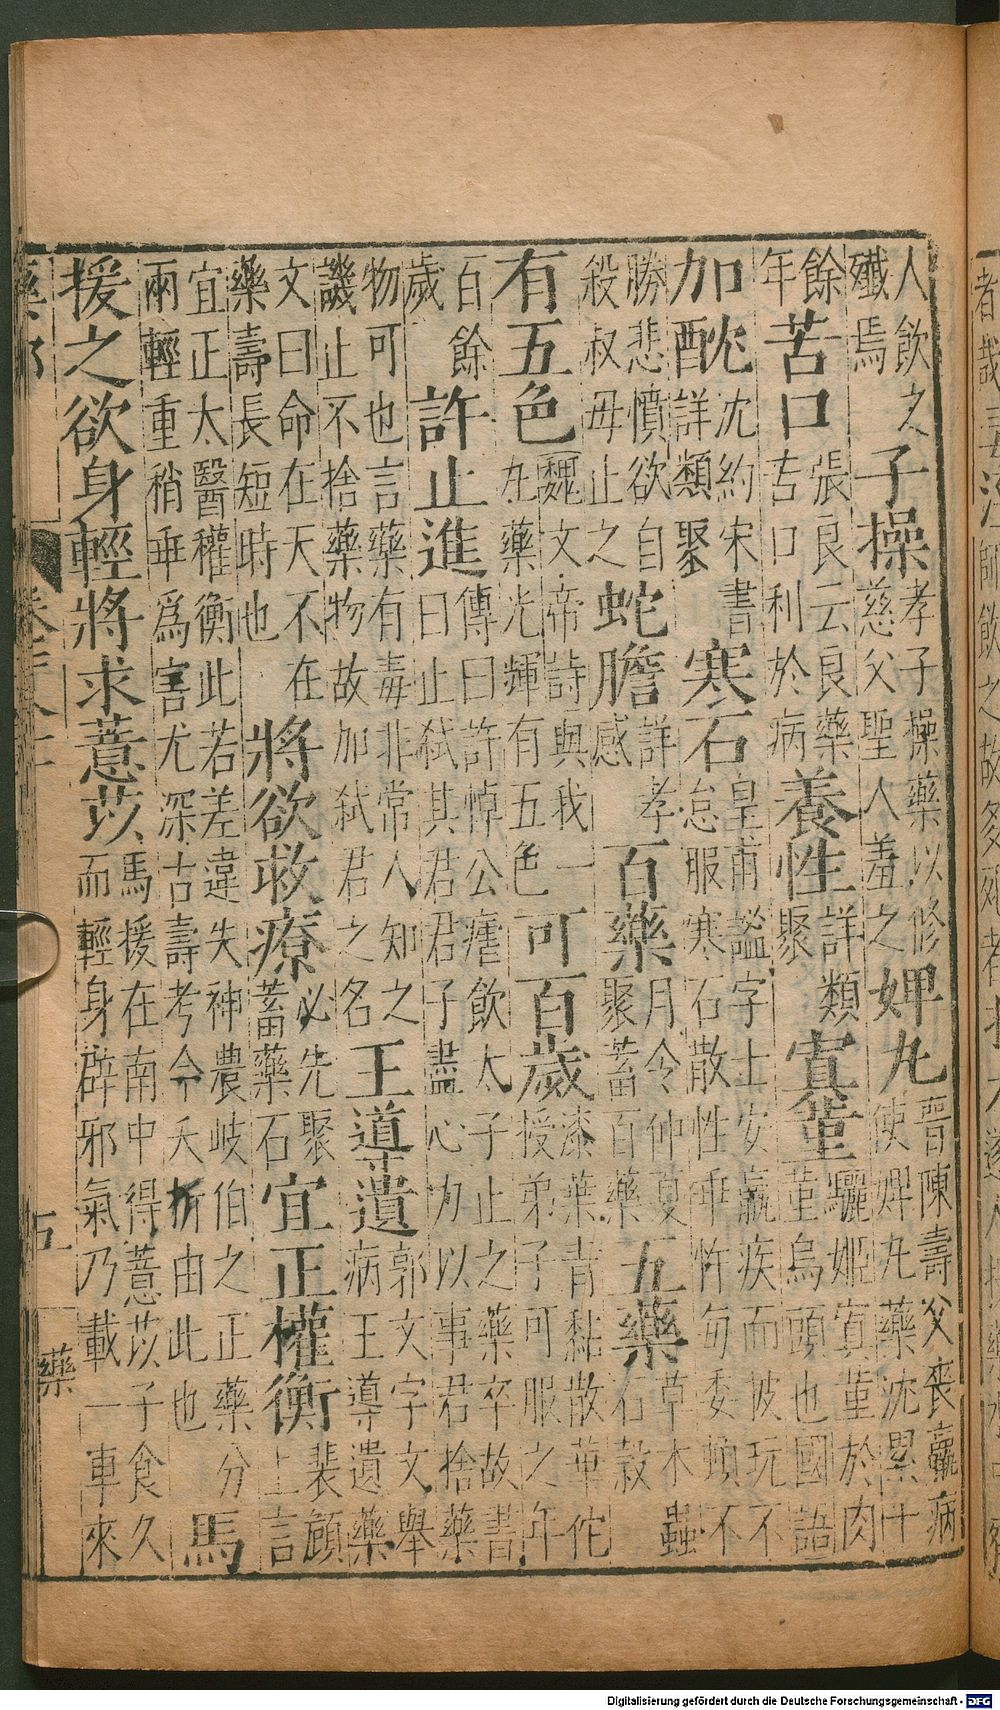 人飲之殲焉子操孝子操藥以修慈父聖人羞之婢丸晉陳壽父喪羸病使婢丸藥沈累十
餘年苦口張良云良藥苦口利於病養性詳類聚寘堇驪姬寘堇於肉堇烏頭也國語
加酖沈約宋書詳類聚寒石皇甫謐字士安羸疾而披玩不怠服寒石散性乖忤每委頓不
勝悲憤欲自殺叔母止之蛇膽詳孝感百藥月令仲夏聚蓄百藥五藥草木蟲石穀
有五色魏文帝詩與我一丸藥光輝有五色可百歲漆葉青黏散華佗授弟子可服之年
百餘歲許止進傳曰許悼公瘧飲太子止之藥卒故書曰止弒其君君子盡心力以事君捨藥
物可也言藥有毒非常人知之譏止不捨藥物故加弒君之名王導遺郭文字文舉病王導遺藥
文曰命在天不在藥壽長短時也將欲救療必先聚蓄藥石宜正權衡裴頠上言
宜正太醫權衡此若差違失神農岐伯之正藥分兩輕重稍乖爲害尤深古壽考今夭折由此也馬
援之欲身輕將求薏苡馬援在南中得薏苡子食久而輕身辟邪氣乃載一車來
五
藥
Digitalisierung gefördert durch die Deutsche Forschungsgemeinschaft - DFG